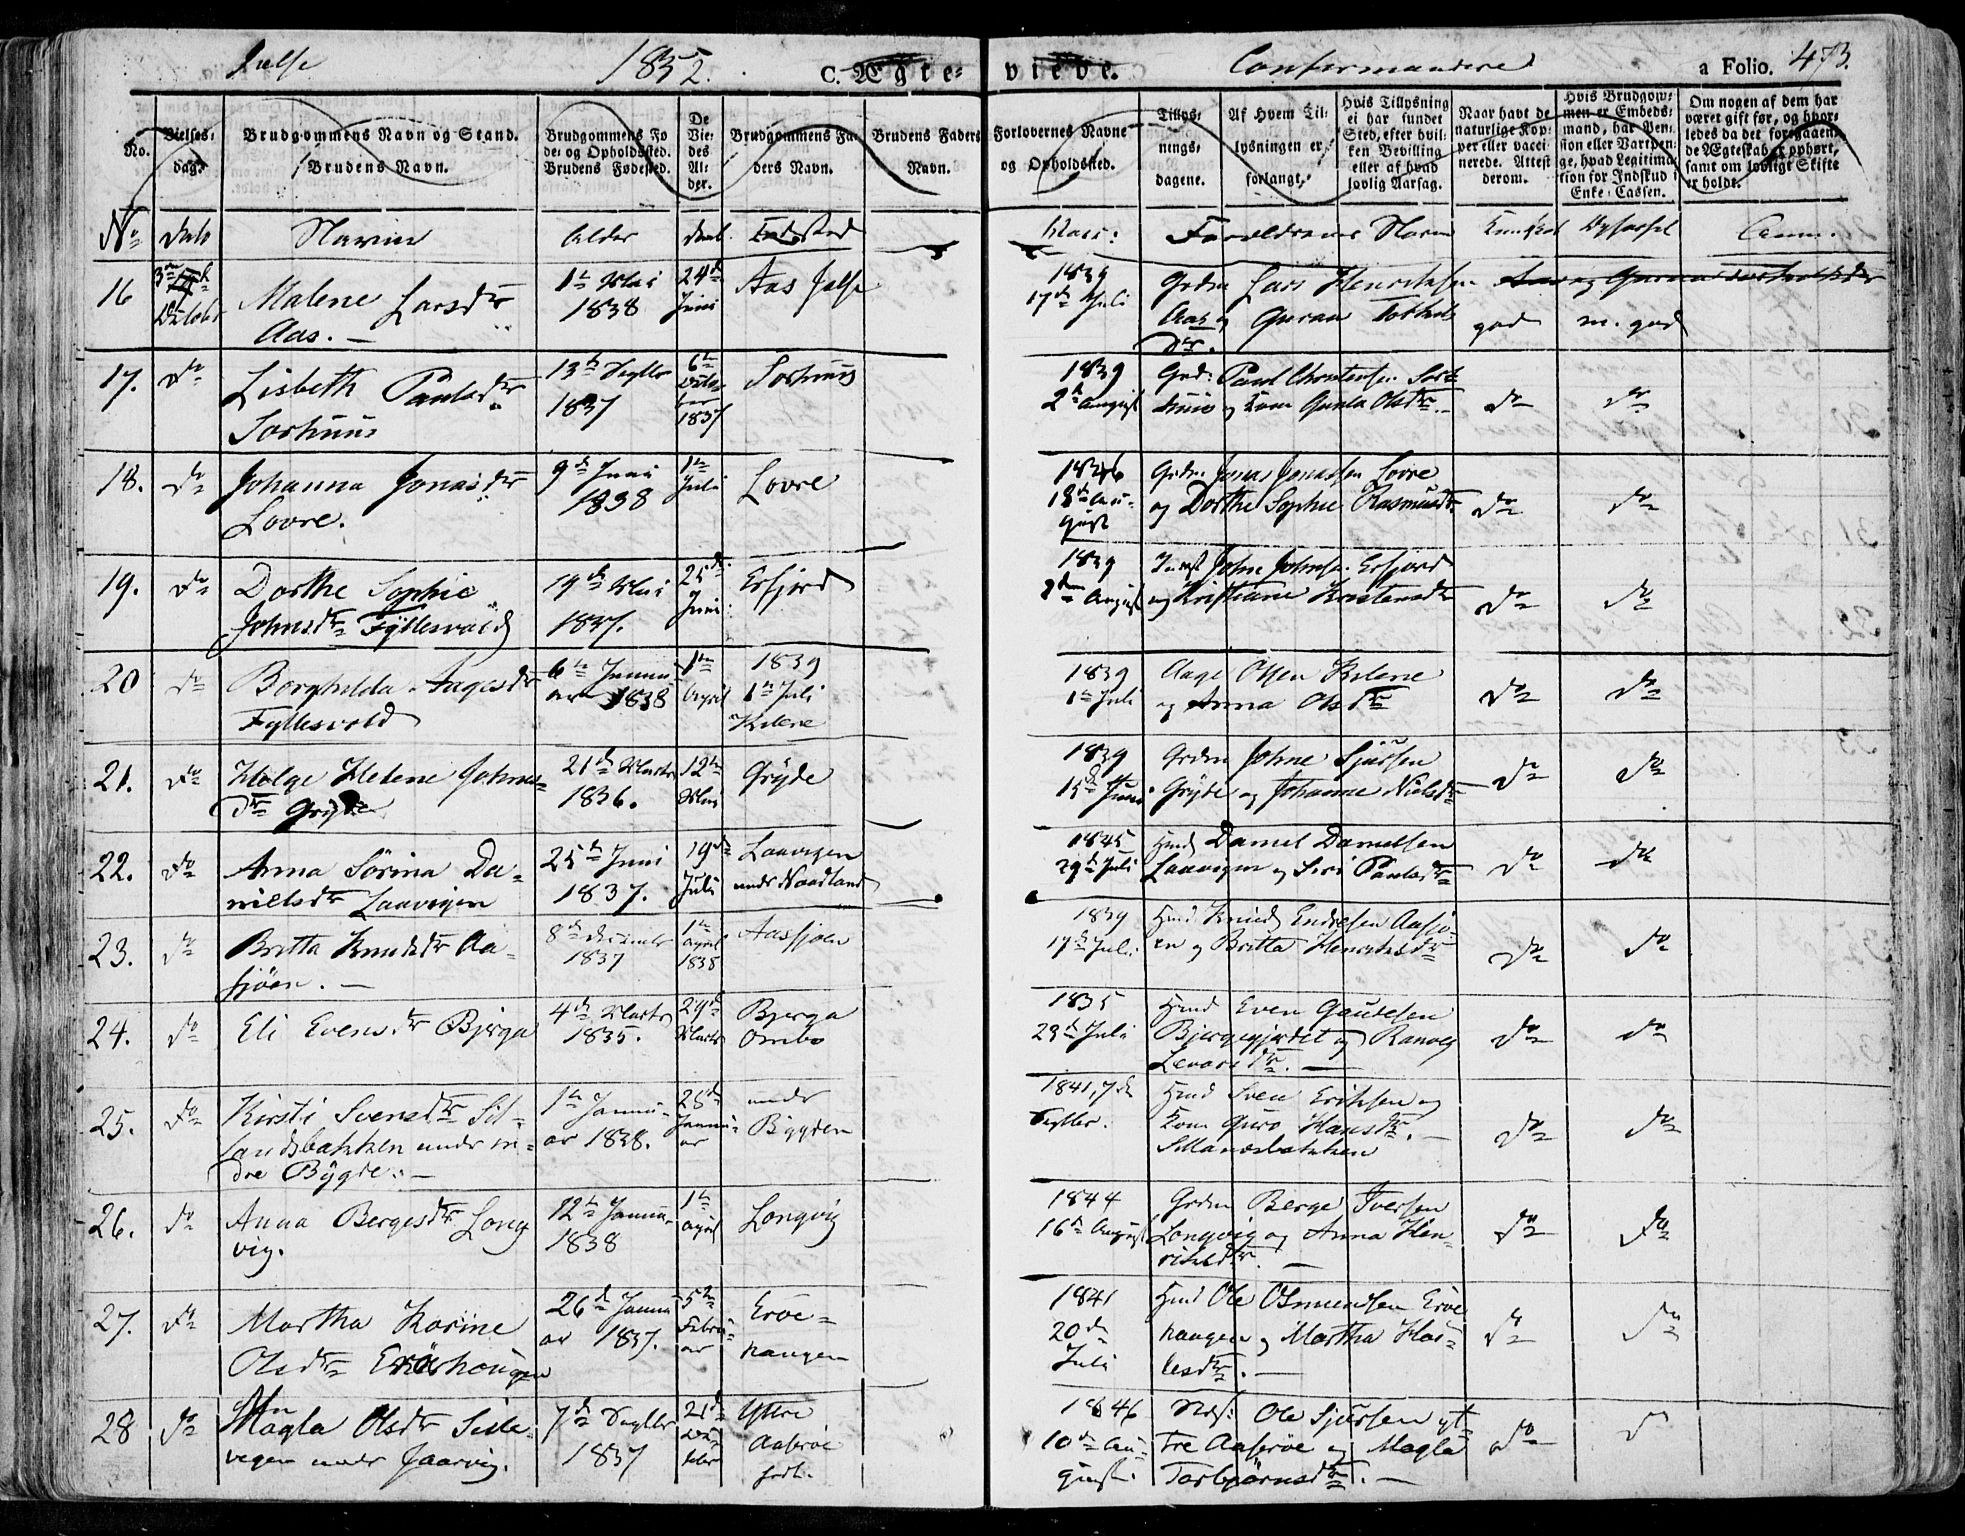 Jælse 1852. C. Ægte= vieve. Confirmandere a Folio. 473.
No. Vielses= dag. Brudgommens Navn og Stand. Brudens Navn. Brudgommens Fø de= og Opholdssted. Brudens Fødested. De Vie= des Al= der. Brudgommens Fa= ders Navn. Brudens Faders Navn. Forlovernes Navne og Opholdssted. Tillys= nings= dagene. Af Hvem Til= lysningen er forlangt. Hvis Tillysning ei har fundet Sted, efter hvil= ken Bevilling eller af hvad lovlig Aarsag. Naar havt de naturlige Kop= per eller vacci= nerede. Attest derom. Hvis Brudgom= men er Embeds= mand, har Pen= sion eller Vartpen= ge, hvad Legitima= tion for Indskud i Enke=Cassen. Om nogen af dem har været gift før, og hvor= ledes da det foregaaen= de Ægteskab er ophørt, samt om lovligt Skifte er holdt.
No Dato Navn Alder Daab Fødested Vacc: Forældrenes Navn Kundskab Opførsel Anm.
16 3die Octobr Malene Larsdtr Aas. 1te Mai 1838 24de Juni Aas Jælse 1839 17de Juli Grdm Lars Henriksen Aas og Guran Dtr. god m. god
17. do Lisbeth Paulsdtr Sorhuus 13de Septbr 1837 6te Octo- ber 1837 Sorhuus 1839 2de August Grd: Paul Christensen Sor huus og Kone Gunla Olsdtr. do do
18. do Johanna Jonasdtr Lovre. 9de Juni 1838 1te Juli Lovre 1846 18de Au- gust Grdm Jonas Jonassen Lovre og Dorthe Sophie Rasmusdtr do do
19. do Dorthe Sophie Johnsdtr Fyllesvold 19de Mai 1837. 25de Juni Erfjord 1839 August Johne Johnsen Erfjord og Kristiane Kristensdtr do do
20 do Borghilda Aagesdtr Fyllesvold 6te Janu- ar 1838 1te April 1839 1te Juli Kilene 1839 1te Juli Aage Olsen Kilene og Anna Olsdtr do do
21. do Helge Helene Johns- dtr Gryde 21de Marts 1836. 12te Mai Gryde 1839 15de Juni Grdm Johne Sjursen Gryde og Johanne Nielsdtr do do
22. do Anna Sørina Da- nielsdtr Laavigen 25de Juni 1837. 19de Juli Laavigen under Naadland 1845 29de Juli Hmd Daniel Danielsen Laavigen og Siri Paulsdtr do do
23. do Britta Knudsdtr Aa- sjöen. 8de December 1837 1te April 1838 Aasjøen 1839 17de Juli Hmd Knud Endresen Aasjö- en og Britta Henriksdtr do do
24. do Eli Evensdtr Bjerga 4de Marts 1835. 29de Marts Bjerga Ombo 1835 23de Juli Hmd Even Gautesen Bjergegjerdet og Ranveg dtr. do do
25. do Kirsti Svensdtr Sil- landsbakken under in- dre Bygde. 1te Janu- ar 1838. 28de Janu- ar under Bygden 1841, 7de Septbr. Hmd Sven Eriksen og Kone Guro Hansdtr. Sillandsbakken do do
26. do Anna Bergesdtr Long vig. 12te Janu- 1838 1te April Longvig 1844 16de August Grdm Berge Iversen Longvig og Anna Hen- riksdtr. do do
27. do Martha Karine Olsdtr Eröehougen 26de Janu ar 1837. 5te Febru- ar Eröe- haugen 1841 20de Juli Hmd Ole Osmundsen Eröe haugen og Martha dtr. do do
28 do Magla Olsdtr under Jaarvig. 7de Septbr 1837 21de Oc- tober Yttre Aaserøe født. 1846 10de Au- gust. Ole Sjursen yt- tre Aaserøe og Magla Torbjørnsdtr. do do